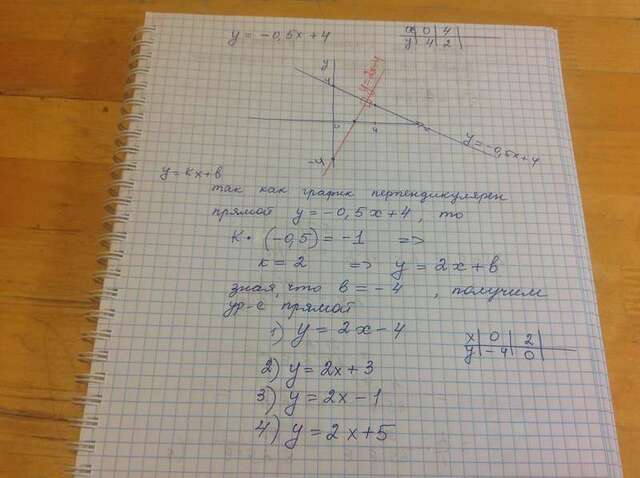 y = -0,5x+4
x | 0 | 4
y | 4 | 2
y
4
y=2x-4
4
-4
y=-0,5x+4
y=kx+b
так как график перпендикулярен
прямой y = -0,5x+4, то
k· (-0,5) = -1 =>
k = 2 => y = 2x+b
зная, что b = -4, получим
ур-е прямой
1) y = 2x-4
x | 0 | 2
y | -4 | 0
2) y = 2x+3
3) y = 2x-1
4) y = 2x+5